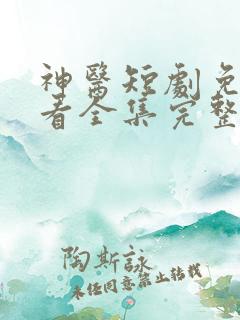 神醫短劇免
看全集完整
陶斯詠
未经同意禁止转载